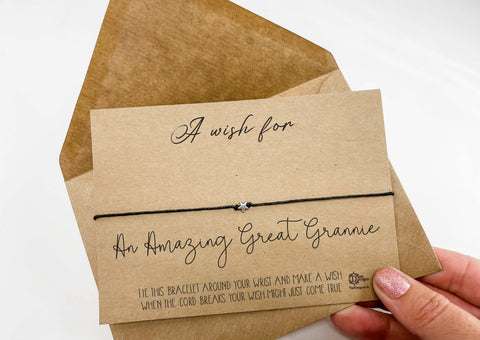 A wish for
An Amazing Great Grannie
TIE THIS BRACELET AROUND YOUR WRIST AND MAKE A WISH
WHEN THE CORD BREAKS YOUR WISH MIGHT JUST COME TRUE